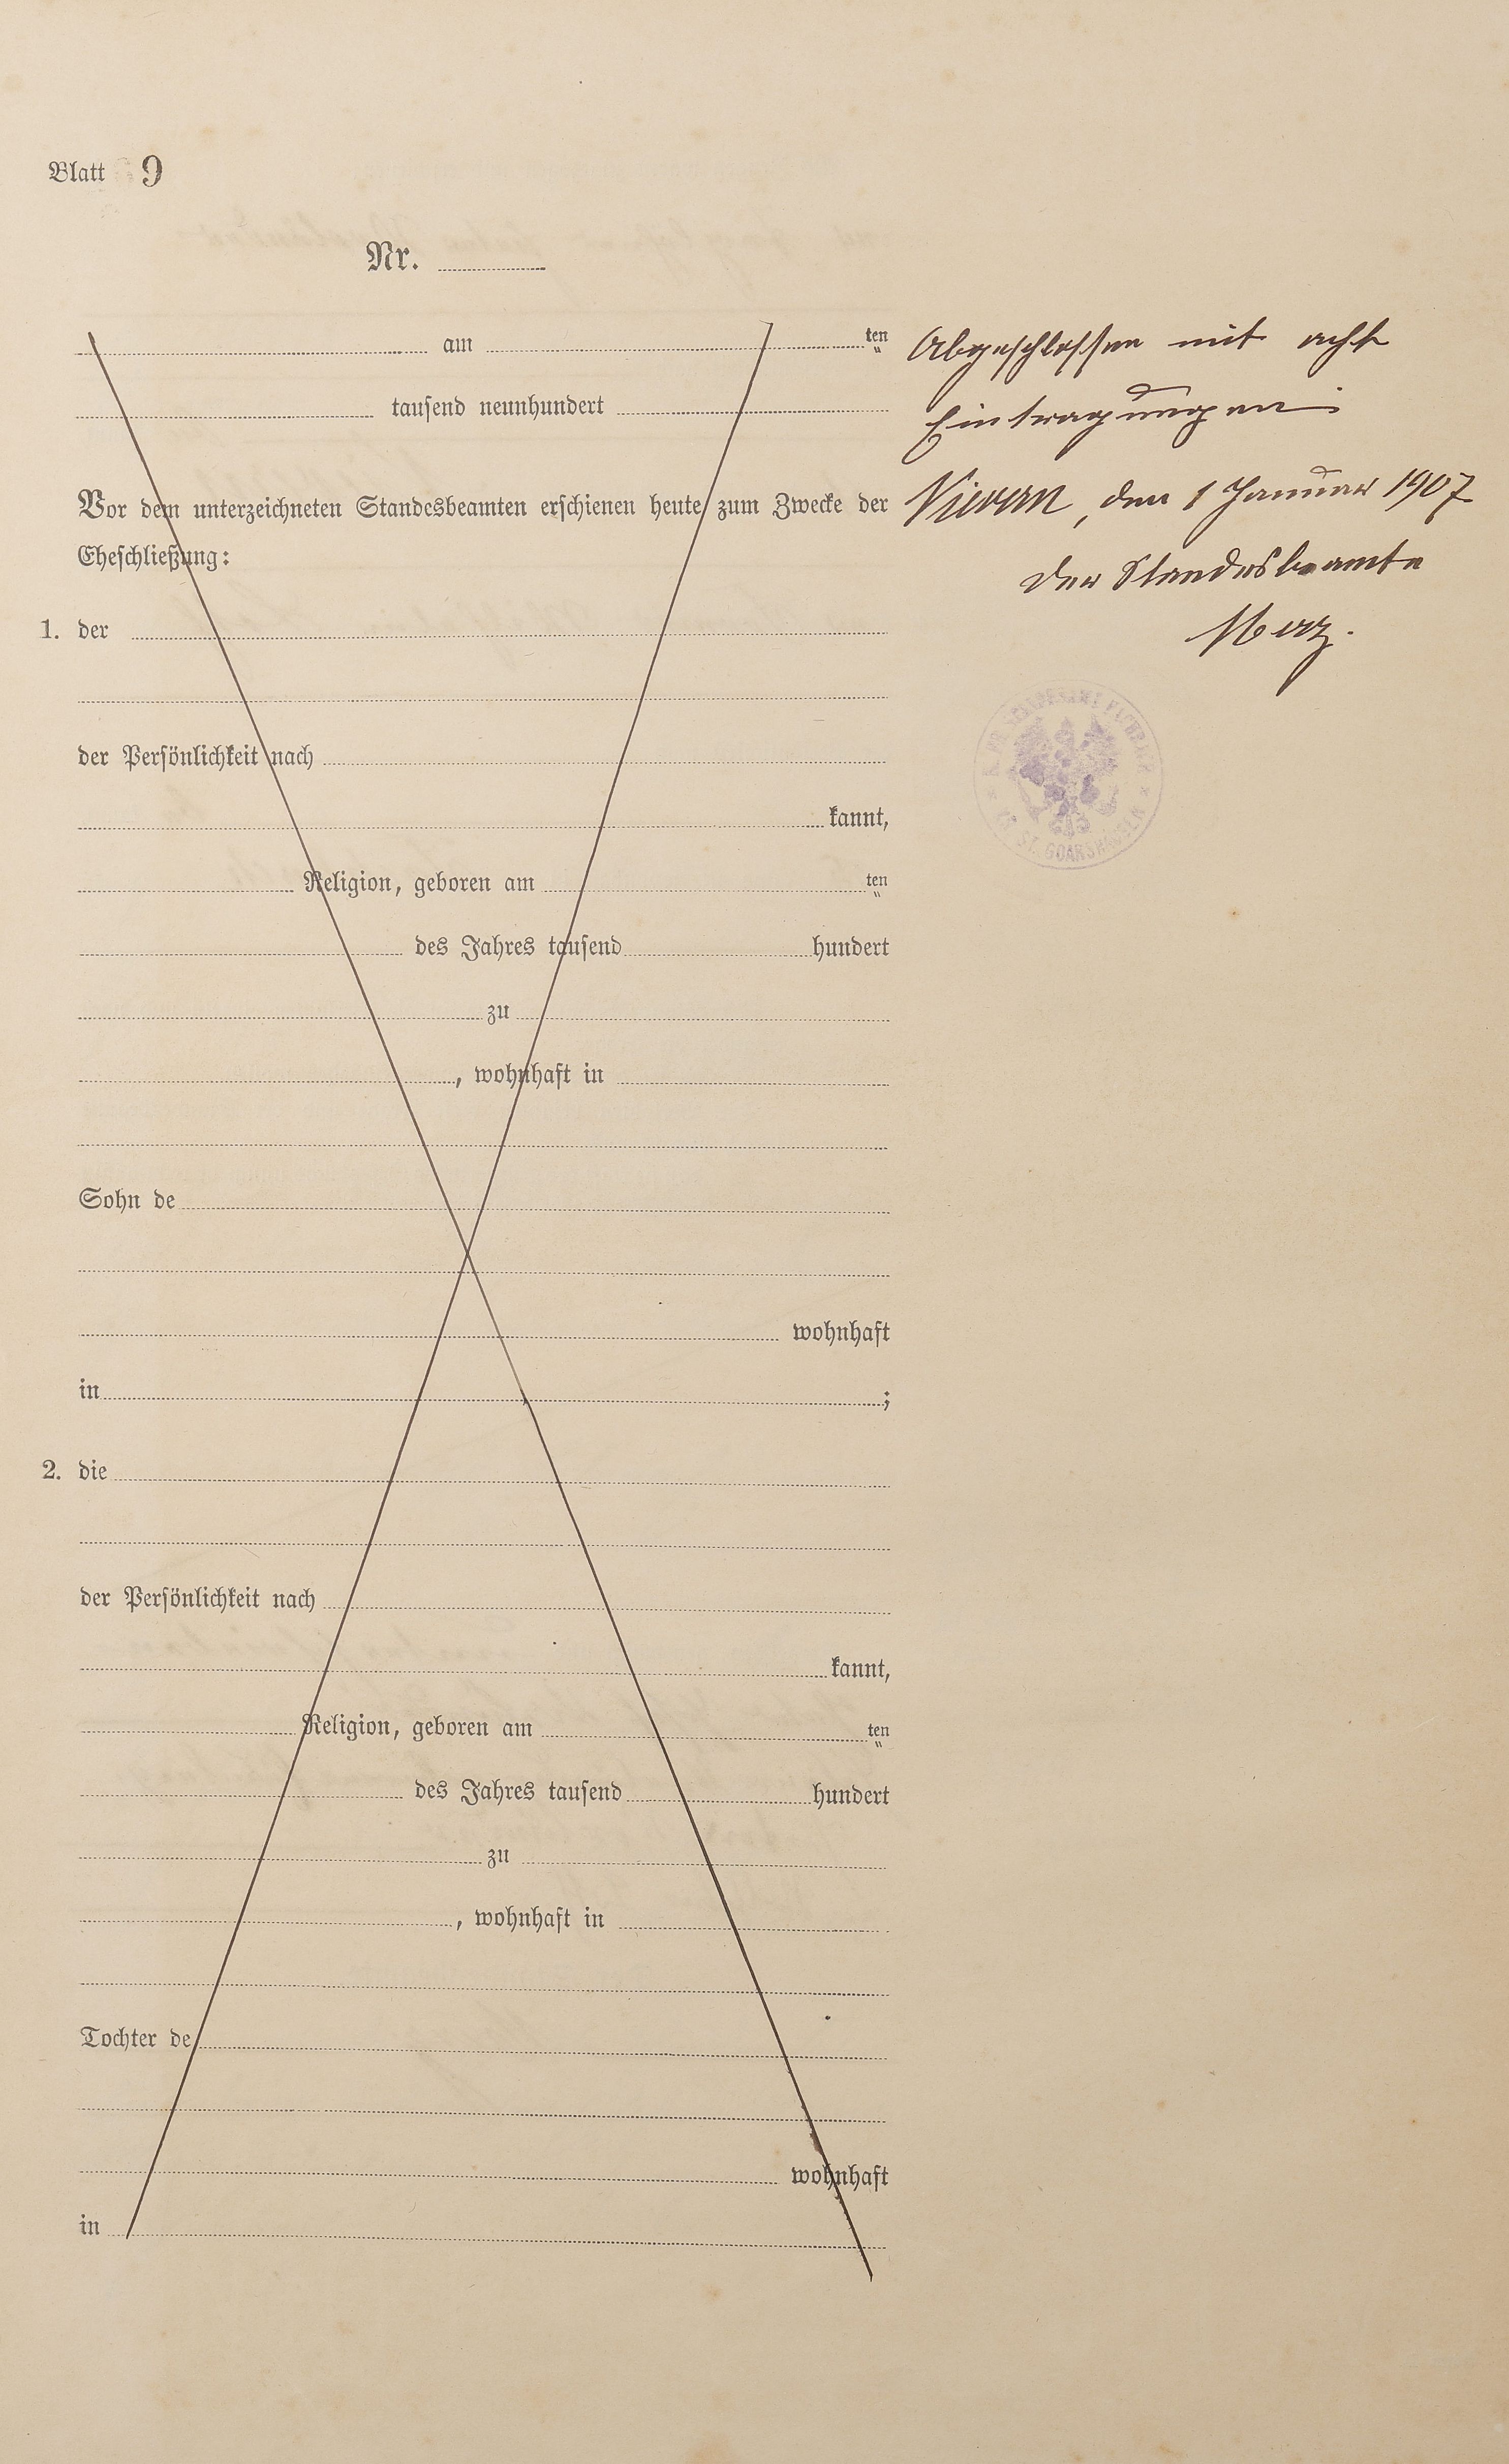 Blatt 9
Nr.
am ten
tausend neunhundert
Vor dem unterzeichneten Standesbeamten erschienen heute zum Zwecke der
Eheschließung:
1. der
der Persönlichkeit nach
kannt,
Religion, geboren am ten
des Jahres tausend hundert
zu
, wohnhaft in
Sohn de
wohnhaft
in ;
2. die
der Persönlichkeit nach
kannt,
Religion, geboren am ten
des Jahres tausend hundert
zu
, wohnhaft in
Tochter de
wohnhaft
in
Abgeschlossen mit acht
Eintragungen
Nievern, den 1 Januar 1907
Der Standesbeamte
ST. GOARSHAUSEN